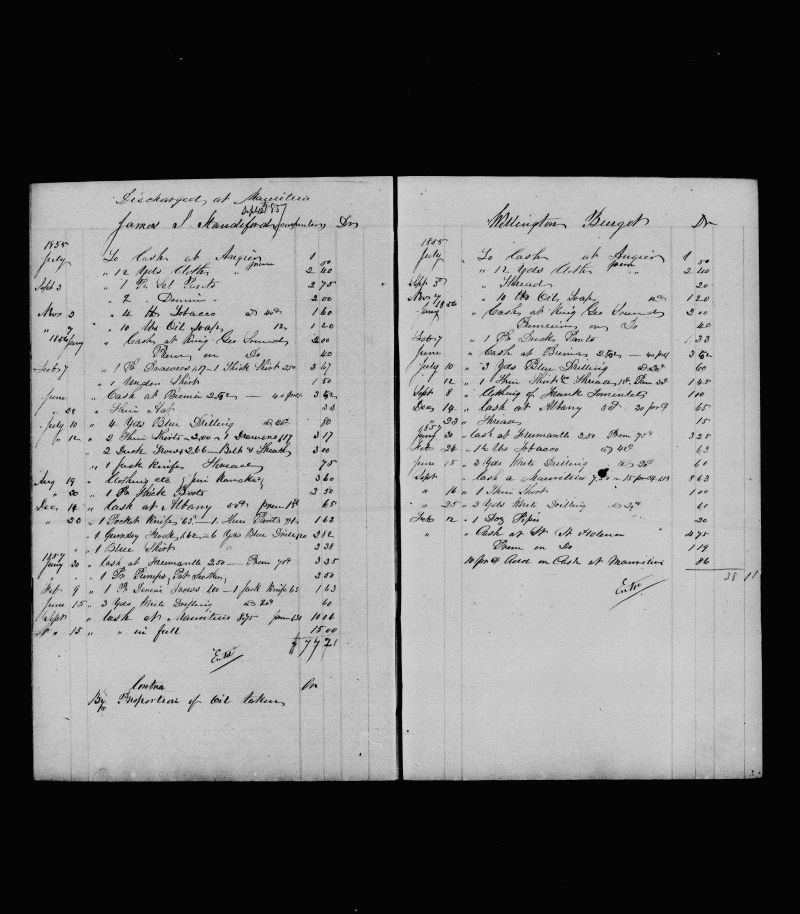 Discharged at Mauritius
Sept 1857
James S Standiford carpenter Dr
1855
July To Cash at Angier 1
" 12 Yds Cloth " prem 50 2 40
Sept 3 " 1 Pr Sct Pants 2 75
" 2 " Denim " 2 00
Nov 3 " 4 lbs Tobacco @ 40c 1 60
" 7 " 10 lbs Oil Soap 12c 1 20
1856 Jany " Cash at King Geo Sounds 2 00
Prem on Do 40
Feb 7 " 1 Pr Drawers 117 - 1 Thick Shirt 250 3 67
" 1 Shirt 1 50
June " Cash at Bunin 262 — 3 62
" 28 " Hat 33
July 10 " 4 Yds Blue Drilling @ 20c 80
" 12 " 2 Thin Shirts - 200 - 1 Drawers 117 3 17
2 Duck Trows 266 - Belt & Sheath 3 00
" 1 Jack Knife Thread 75
Aug 19 " Clothing etc 3 60
" 20 " 1 Pr Thick Boots 2 50
Dec 14 " Cash at Albany 50c prem 15c 65
" 20 " 1 Pocket Knife 63 - 1 Thin Pants 1 63
" 1 Guernsey Frock 162 - 6 Yds Blue Drill 120 2 82
" 1 Blue Shirt 2 38
1857
Jany 20 " Cash at Fremantle 250 - Prem 75c 3 25
" " 1 Pr Pumps, Pat Leather 2 50
Feb 9 " 1 Pr Denim Trows 100 - 1 Jack Knife 63 1 63
June 15 " 3 Yds White Drilling @ 20c 60
Sept " Cash at Mauritius 875 prem 131 10 06
" 15 " " in full 15 00
$77 21
Ent
Contra Cr
By Proportion of Oil taken
Wellington Burget Dr
1855
July To Cash at Angier 1
" 12 Yds Cloth prem " 50 2 40
Sept 3 " Thread 20
Nov 7 " 10 lbs Oil Soap 12c 1 20
1856
Jany " Cash at King Geo Sounds 2 00
Premium on Do 40
Feb 7 " 1 Pr Duck Pants 1 33
June " Cash at Bunin 262 — 3 62
July 10 " 3 Yds Blue Drilling @ 20c 60
" 12 " 1 Thin Shirt 1 45
Sept 8 " Clothing of Frank 1 00
Dec 14 " Cash at Albany 50c 30 prct 65
" 23 " Thread 15
1857
Jany 20 " Cash at Fremantle 250 Prem 75c 3 25
Feb 26 " 1½ lbs Tobacco @ 42c 63
June 15 " 3 Yds White Drilling @ 20c 60
Sept " Cash a Mauritius 7.50 - 15 prct 113 8 63
" 16 " 1 Thin Shirt 1 00
" 25 " 3 Yds White Drilling @ 60
Feb 12 " 1 Doz Pipes 20
" " Cash at St Helena 4 75
Prem on Do 1 19
10 prct Add on Cash at Mauritius 86
38 11
Ent